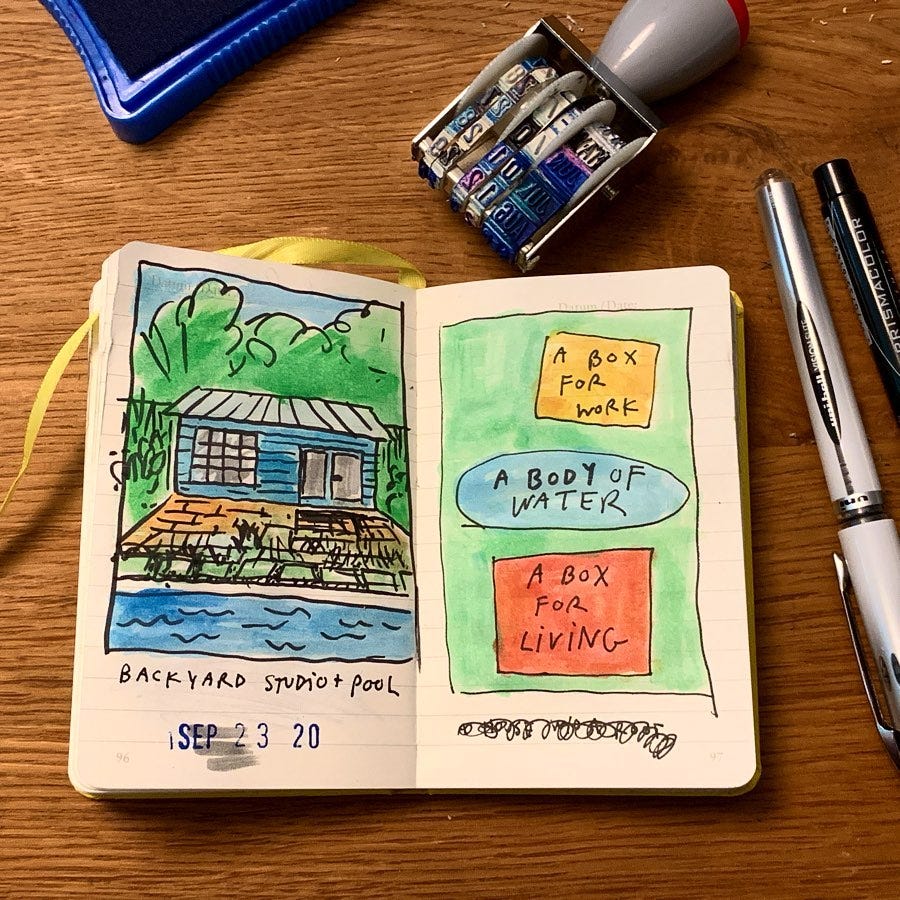 BACKYARD STUDIO + POOL
SEP 23 20
96
Datum / Date:
A BOX
FOR
WORK
A BODY OF
WATER
A BOX
FOR
LIVING
97
PRISMACOLOR
uni